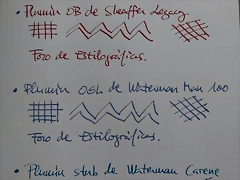 • Plumín OB de Sheaffer Legacy.
Foro de Estilográficas.
• Plumín OBL de Waterman Man 100
Foro de Estilográficas.
• Plumín stub de Waterman Carene